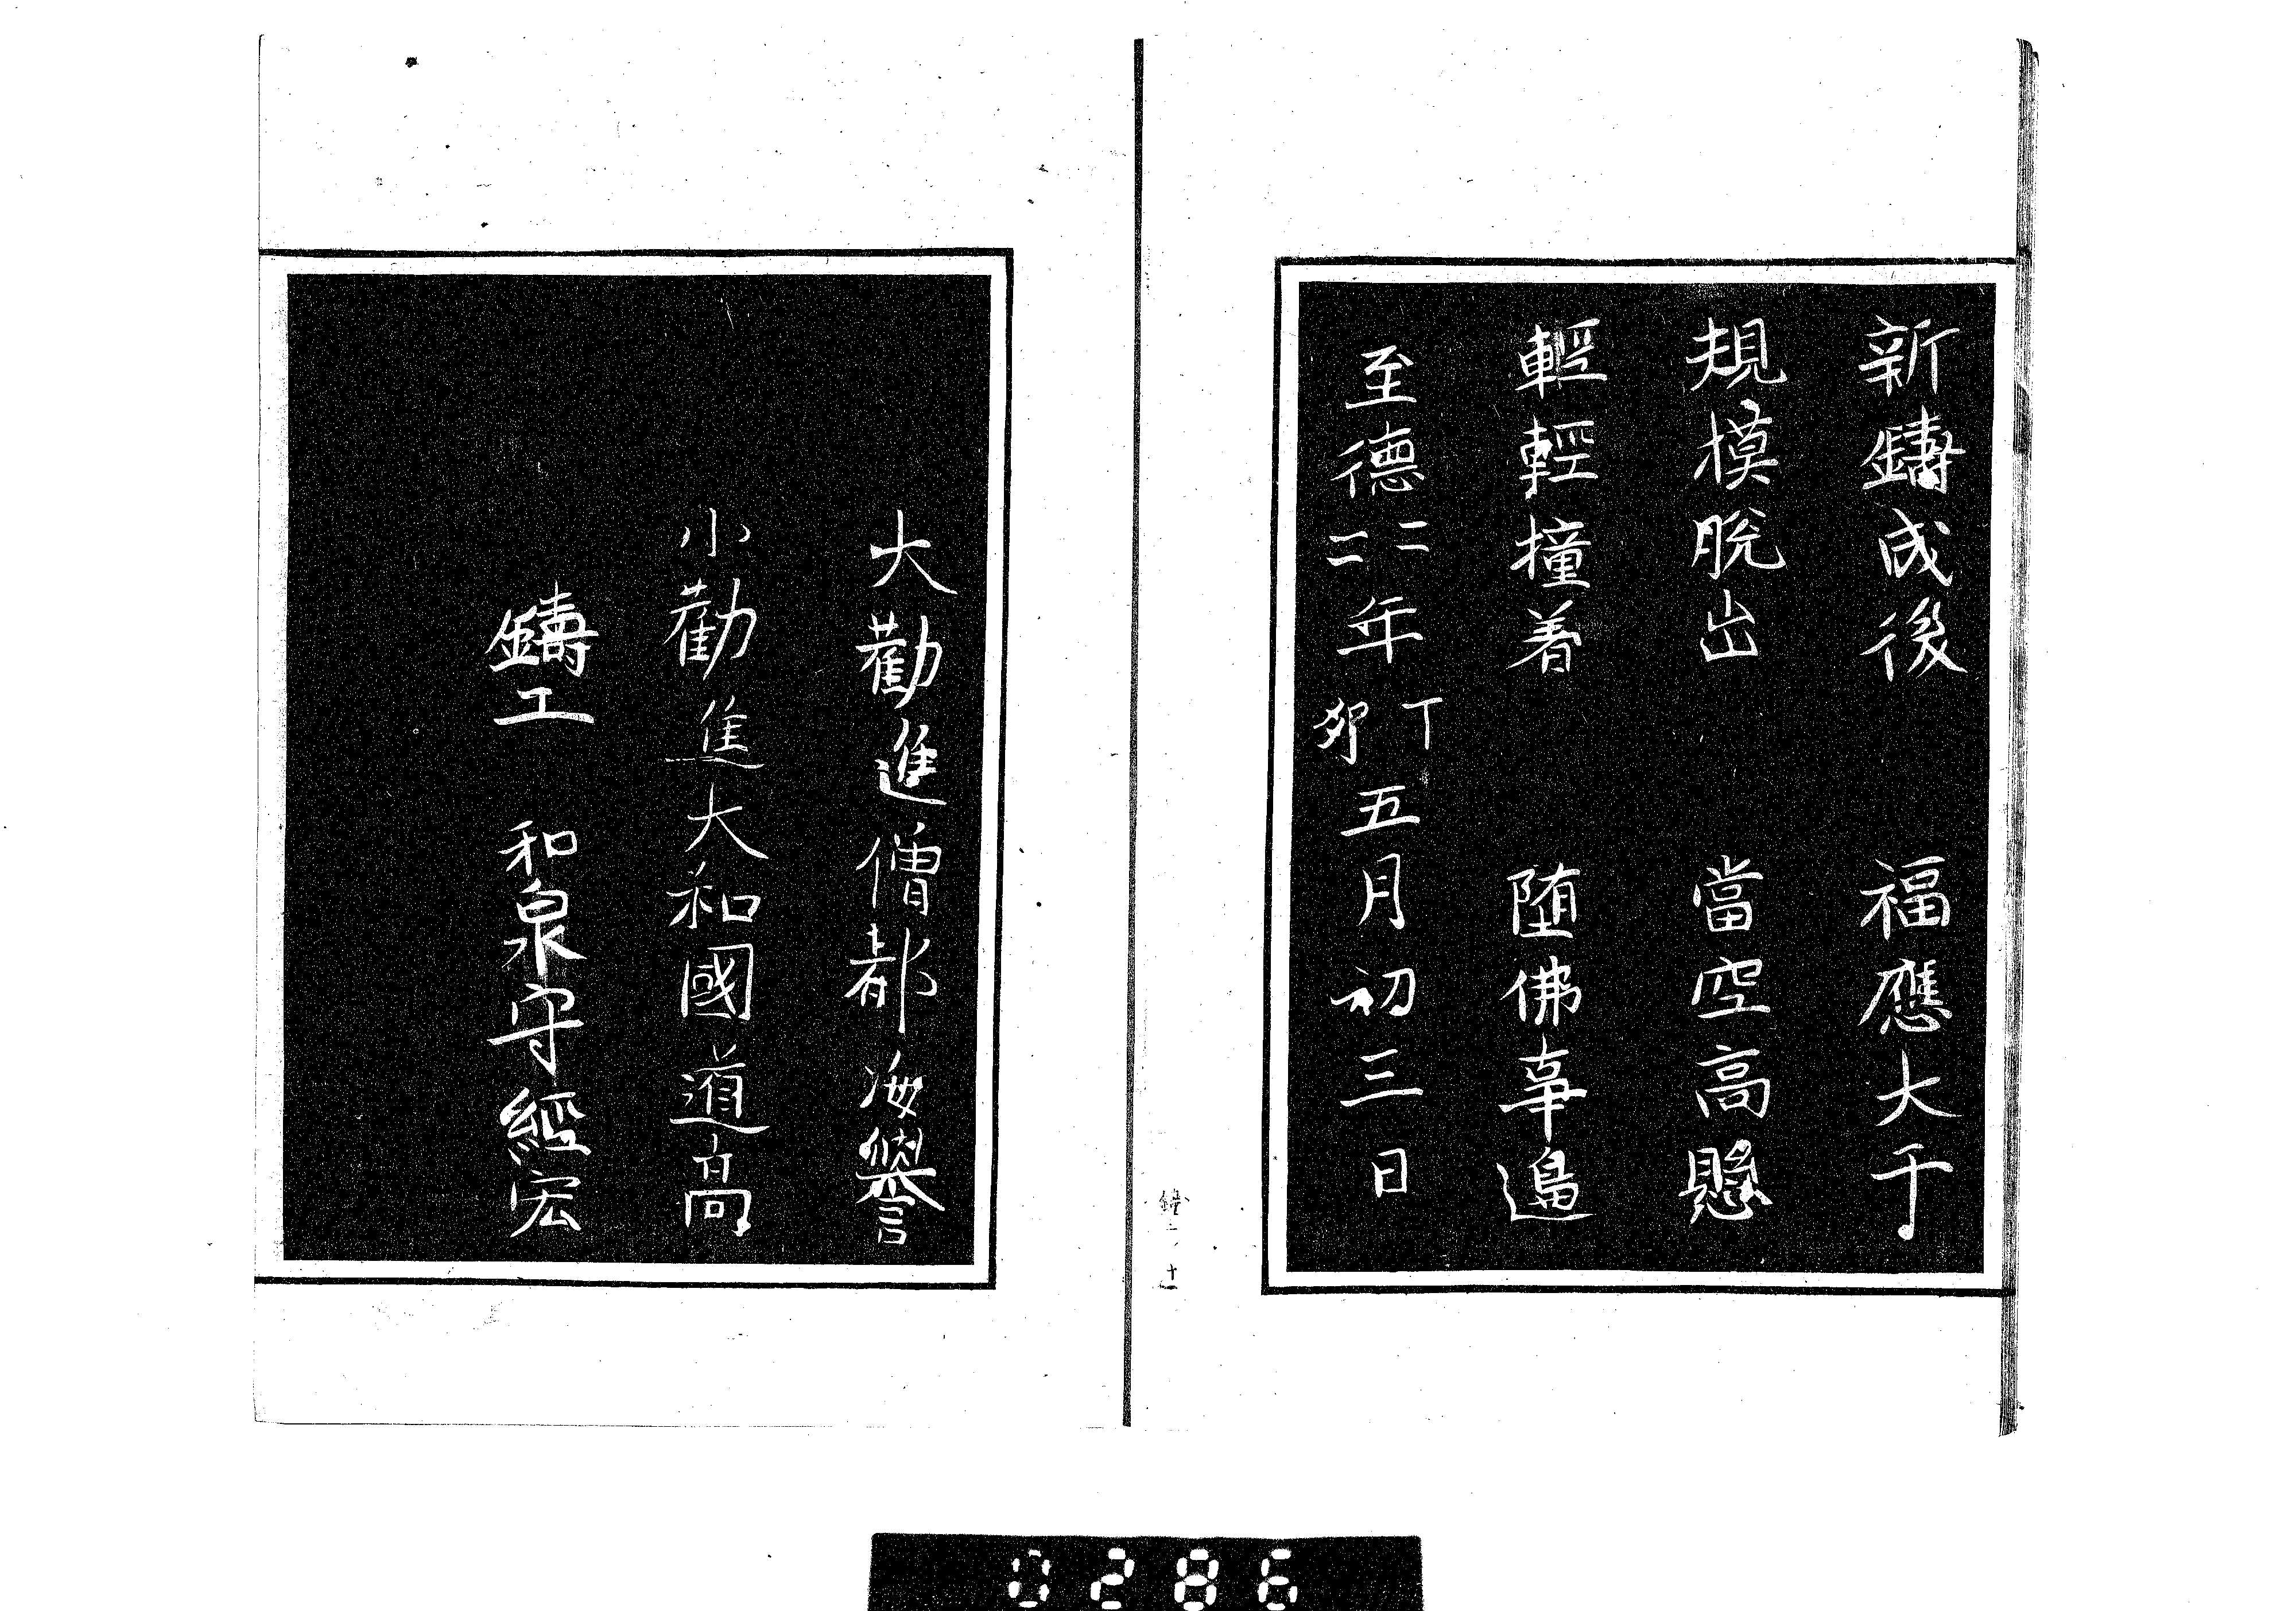 新鑄成後　福應大千
規模脱出　當空高懸
輕輕撞着　随佛事邉
至德二二年丁卯五月初三日
鐘一ノ十一
大勸進僧都海譽
小勸進大和國道高
鑄工　和泉守經宏
0286